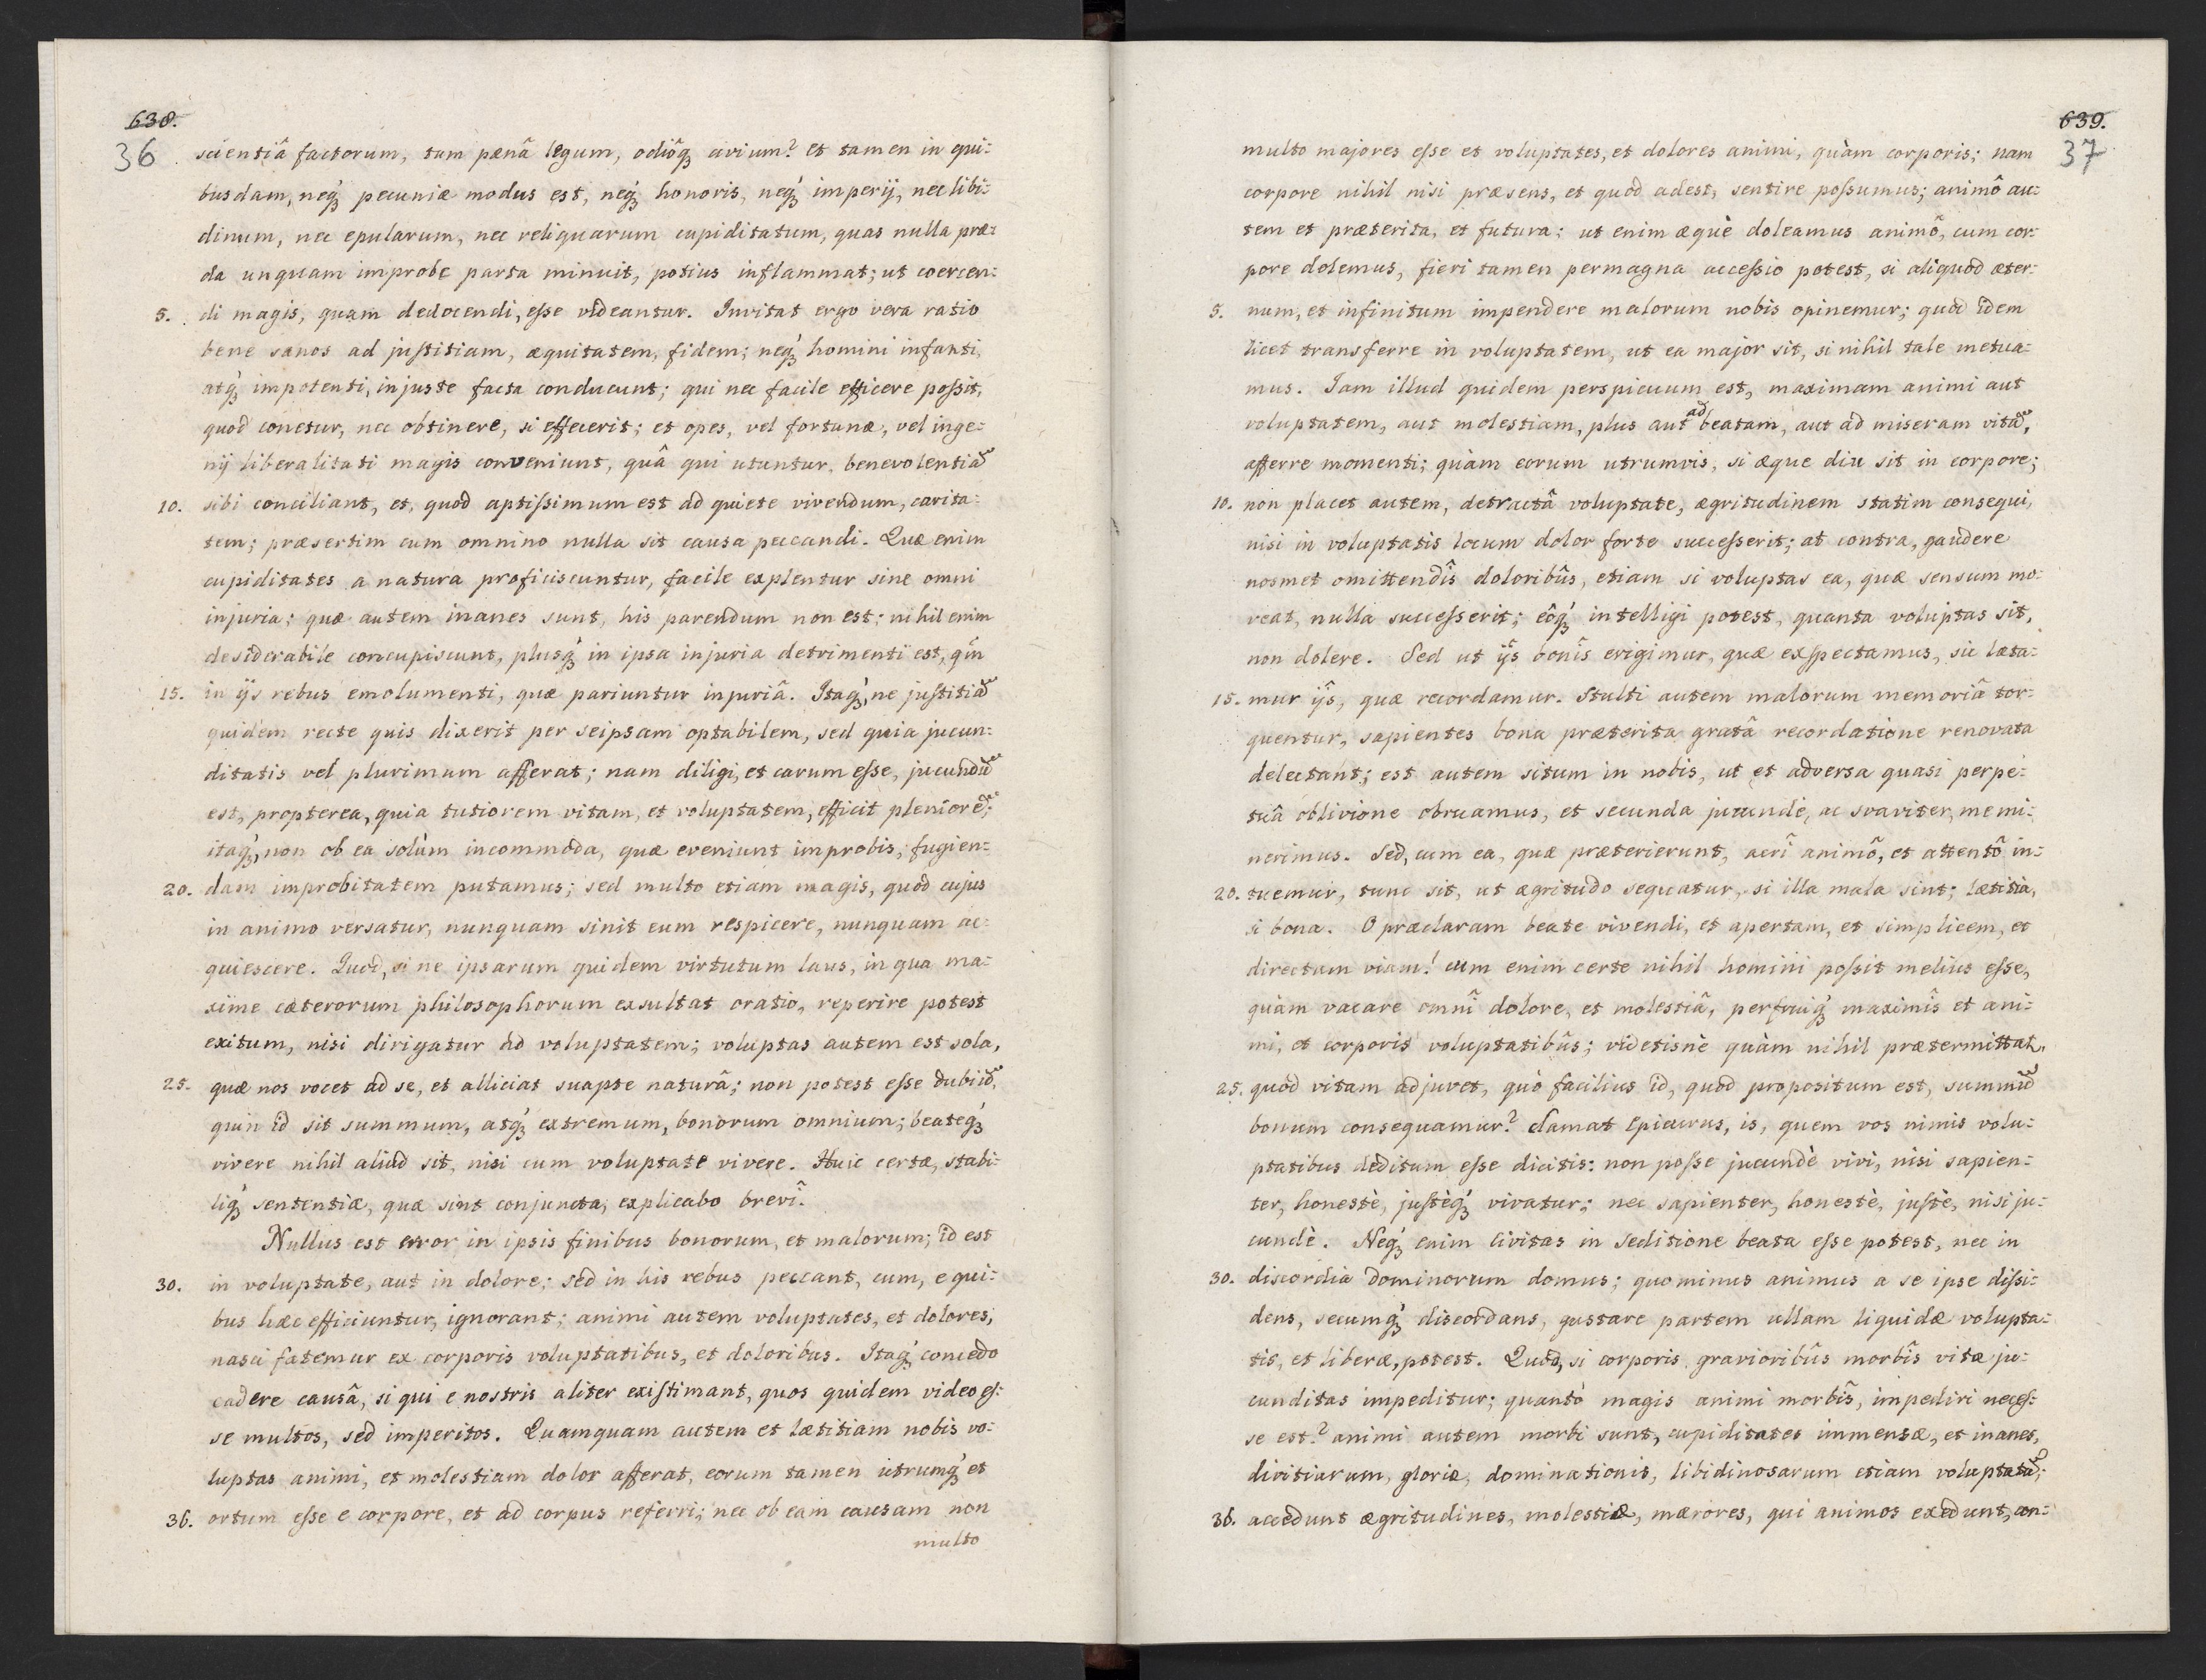 638.
36
scientiâ factorum, tum pænâ legum, odiôq́ꝫ civium? et tamen in qui:
busdam, neq́ꝫ pecuniæ modus est, neq́ꝫ honoris, neq́ꝫ imperij, nec libi:
dinum, nec epularum, nec reliquarum cupiditatum, quas nulla præ:
da unquam improbe parta minuit, potius inflammat; ut coercen:
5. di magis, quam dedocendi, esse videantur. Invitat ergo vera ratio
bene sanos ad justitiam, æquitatem, fidem; neq́ꝫ homini infanti,
atq́ꝫ impotenti, injuste facta conducunt; qui nec facile efficere possit,
quod conetur, nec obtinere, si effecerit; et opes, vel fortunæ, vel inge:
nij liberalitati magis conveniunt, quâ qui utuntur, benevolentiã
10. sibi conciliant, et, quod aptissimum est ad quiete vivendum, carita:
tem; præsertim cum omnino nulla sit causa peccandi. Quæ enim
cupiditates a natura proficiscuntur, facile explentur sine omni
injuria; quæ autem inanes sunt, his parendum non est; nihil enim
desiderabile concupiscunt, plusq́ꝫ in ipsa injuria detrimenti est, q̃m
15. in ijs rebus emolumenti, quæ pariuntur injuriâ. Itaq́ꝫ, ne justitiã
quidem recte quis dixerit per seipsam optabilem, sed quia jucun:
ditatis vel plurimum afferat; nam diligi, et carum esse, jucundũ
est, propterea, quia tutiorem vitam, et voluptatem, efficit pleniorẽ;
itaq́ꝫ, non ob ea solùm incommoda, quæ eveniunt improbis, fugien:
20. dam improbitatem putamus; sed multo etiam magis, quod cujus
in animo versatur, nunquam sinit eum respicere, nunquam ac:
quiescere. Quod, si ne ipsarum quidem virtutum laus, in qua ma:
xime cæterorum philosophorum exsultat oratio, reperire potest
exitum, nisi dirigatur ad voluptatem; voluptas autem est sola,
25. quæ nos vocet ad se, et alliciat suapte naturâ; non potest esse dubiũ,
quin id sit summum, atq́ꝫ extremum, bonorum omnium; beateq́ꝫ
vivere nihil aliud sit, nisi cum voluptate vivere. Huic certæ, stabi:
liq́ꝫ sententiæ, quæ sint conjuncta, explicabo brevî.
Nullus est error in ipsis finibus bonorum, et malorum; id est
30. in voluptate, aut in dolore; sed in his rebus peccant, cum, e qui:
bus hæc efficiuntur, ignorant; animi autem voluptates, et dolores,
nasci fatemur ex corporis voluptatibus, et doloribus. Itaq́ꝫ concedo
cadere causâ, si qui e nostris aliter existimant, quos quidem video es:
se multos, sed imperitos. Quamquam autem et lætitiam nobis vo:
luptas animi, et molestiam dolor afferat, eorum tamen utrumq́ꝫ et
36. ortum esse e corpore, et ad corpus referri; nec ob eam causam non
multo
639.
37
multo majores esse et voluptates, et dolores animi, quàm corporis; nam
corpore nihil nisi præsens, et quod adest, sentire possumus; animô au:
tem et præterita, et futura; ut enim æquè doleamus animô, cum cor:
pore dolemus, fieri tamen permagna accessio potest, si aliquod æter:
5. num, et infinitum impendere malorum nobis opinemur; quod idem
licet transferre in voluptatem, ut ea major sit, si nihil tale metua:
mus. Iam illud quidem perspicuum est, maximam animi aut
voluptatem, aut molestiam, plus aut ad beatam, aut ad miseram vitã,
afferre momenti; quàm eorum utrumvis, si æque diu sit in corpore;
10. non placet autem, detractâ voluptate, ægritudinem statim consequi,
nisi in voluptatis locum dolor forte successerit; at contra, gaudere
nosmet omittendîs doloribûs, etiam si voluptas ea, quæ sensum mo:
veat, nulla successerit; eôq́ꝫ intelligi potest, quanta voluptas sit,
non dolere. Sed ut ijs bonîs erigimur, quæ exspectamus, sic læta:
15. mur ijs, quæ recordamur. Stulti autem malorum memoriâ tor:
quentur, sapientes bona præterita gratâ recordatione renovata
delectant; est autem situm in nobis, ut et adversa quasi perpe:
tuâ oblivione obruamus, et secunda jucundè, ac svaviter, memi:
nerimus. Sed, cum ea, quæ præterierunt, acrî animô, et attentô in:
20. tuemur, tunc sit, ut ægritudo sequatur, si illa mala sint; lætitia,
si bona. O præclaram beate vivendi, et apertam, et simplicem, et
directam viam! cum enim certe nihil homini possit melius esse,
quàm vacare omnî dolore, et molestiâ, perfruiq́ꝫ maximîs et ani:
mi, et corporis voluptatibûs; videtisnè quàm nihil prætermittat,
25. quod vitam adjuvet, quò facilius id, quod propositum est, summũ
bonum consequamur? clamat Epicurus, is, quem vos nimis volu:
ptatibus deditum esse dicitis: non posse jucundè vivi, nisi sapien:
ter, honestè, justèq́ꝫ vivatur; nec sapienter, honestè, justè, nisi ju:
cundè. Neq́ꝫ enim civitas in seditione beata esse potest, nec in
30. discordia dominorum domus; quominus animus a se ipse dissi:
dens, secumq́ꝫ discordans, gustare partem ullam liquidæ volupta:
tis, et liberæ, potest. Quod, si corporis gravioribûs morbîs vitæ ju:
cunditas impeditur; quantò magis animi morbîs, impediri neces:
se est? animi autem morbi sunt, cupiditates immensæ, et inanes,
divitiarum, gloriæ, dominationis, libidinosarum etiam voluptatũ;
36. accedunt ægritudines, molestiæ, mærores, qui animos exedunt, con: